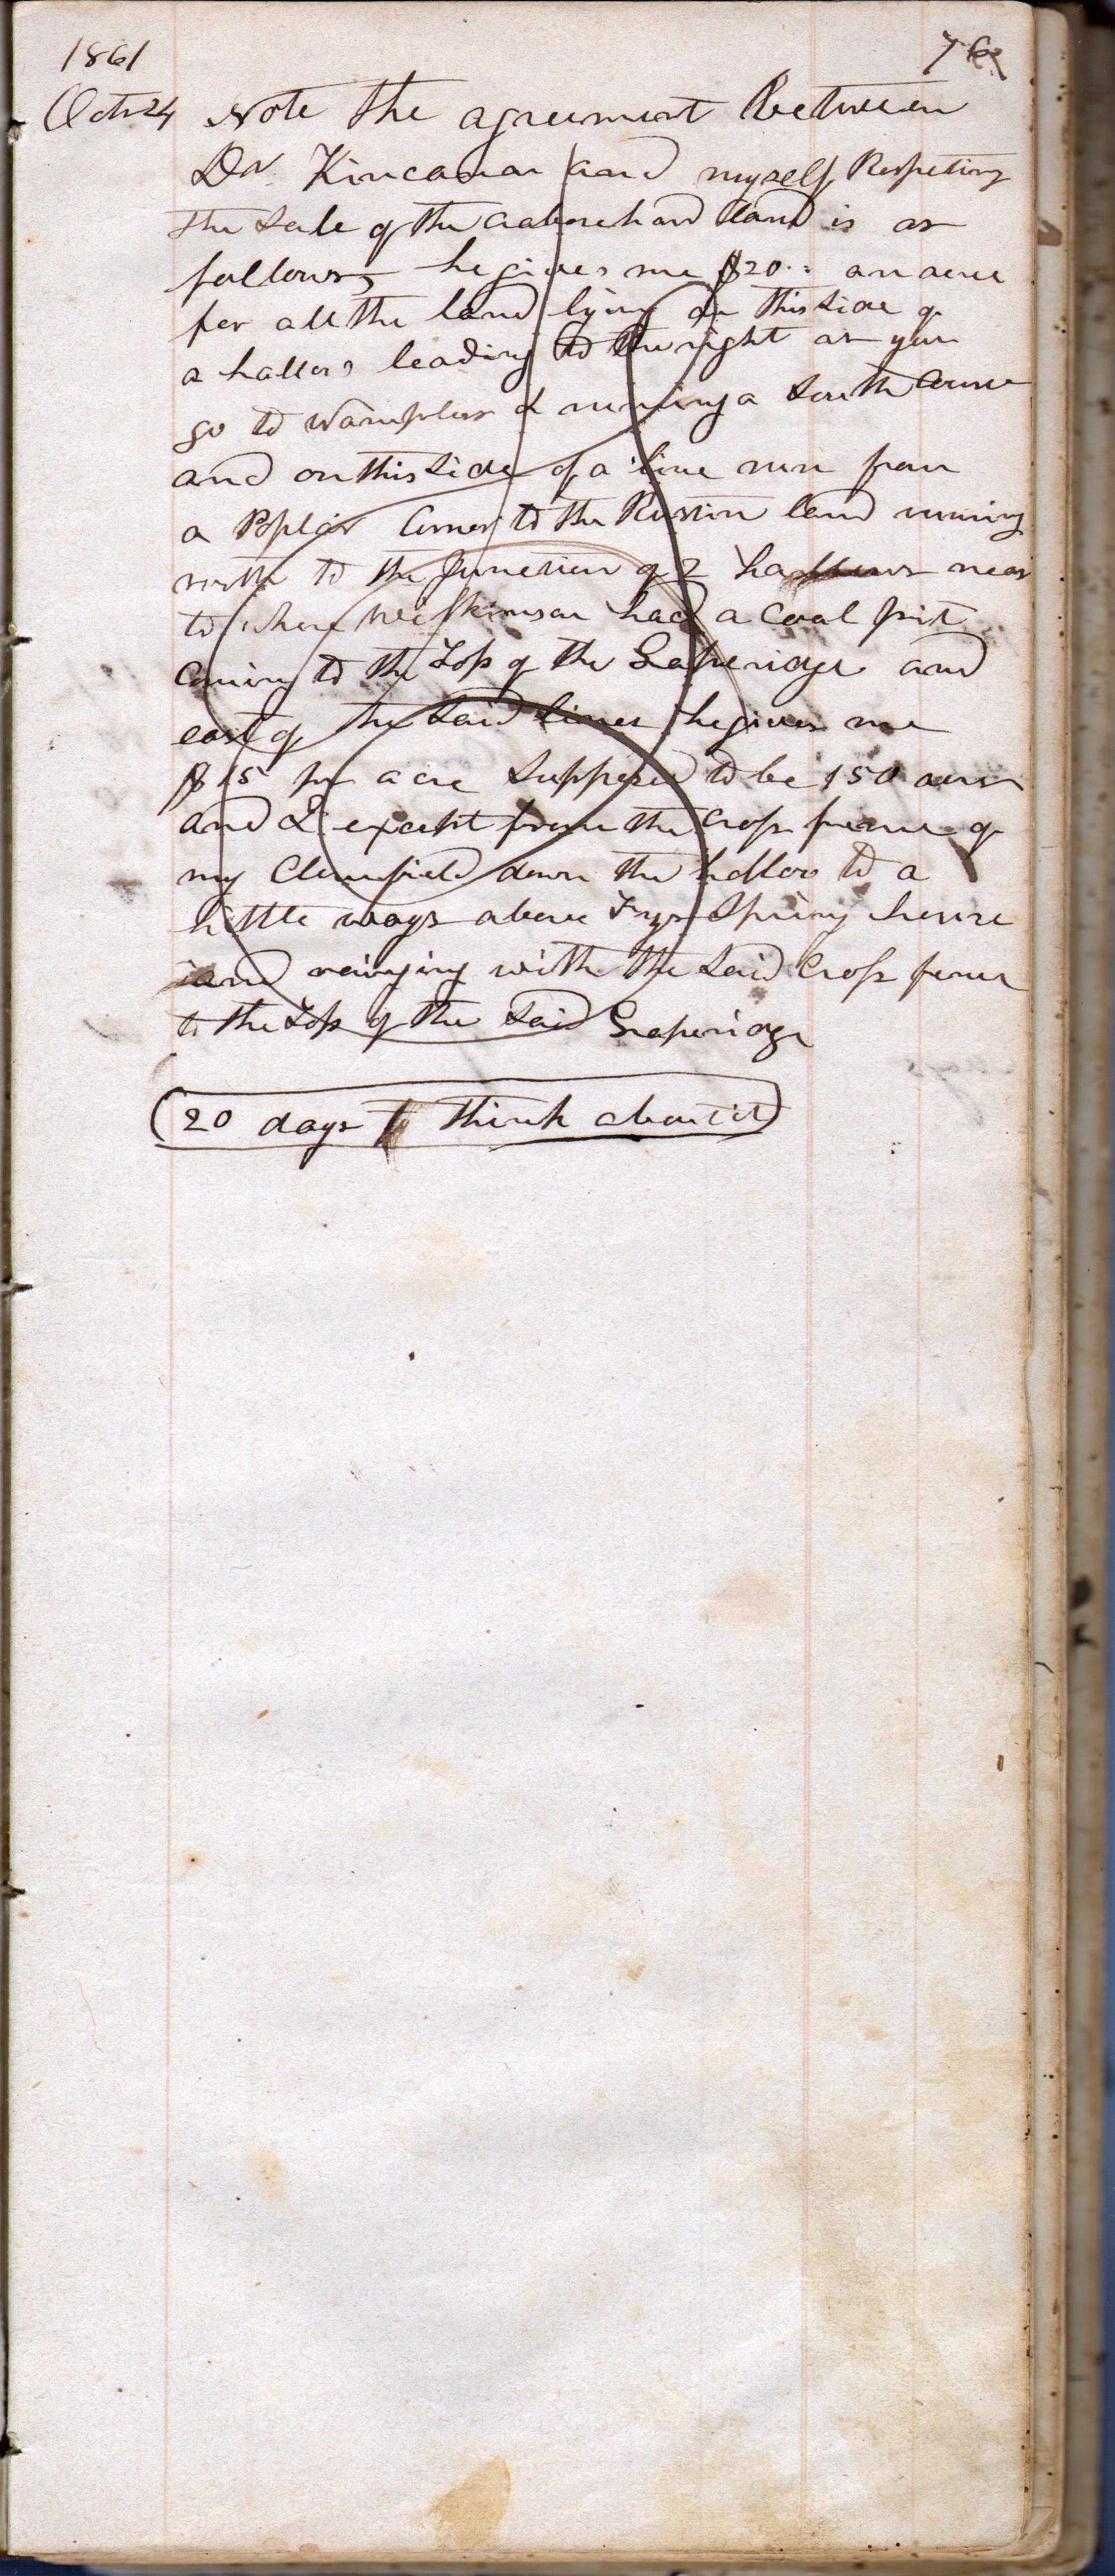 1861 76
Octr 24 Note the agreement Between
Dr. Kincanan and myself Respecting
the Sale of the land is as
follows, he gives me $20.. an acre
for all the land lying on this side of
a hallow leading to the right as you
go to Wamplers & runing a South Course
and on this side of a line run from
a Poplar Corner to the Ruston land runing
north to the Junction of 2 hallows near
to where Wilkinson had a Coal pit
Coming to the Top of the Graperidge and
east of the Said lines he gives me
$15 per acre Supposed to be 150 acres
and I except from the Cross fence of
my down the hollow to a
little ways above Frys Spring house
and rainging with the Said Cross fence
to the Top of the Said Graperidge
20 days to think about it